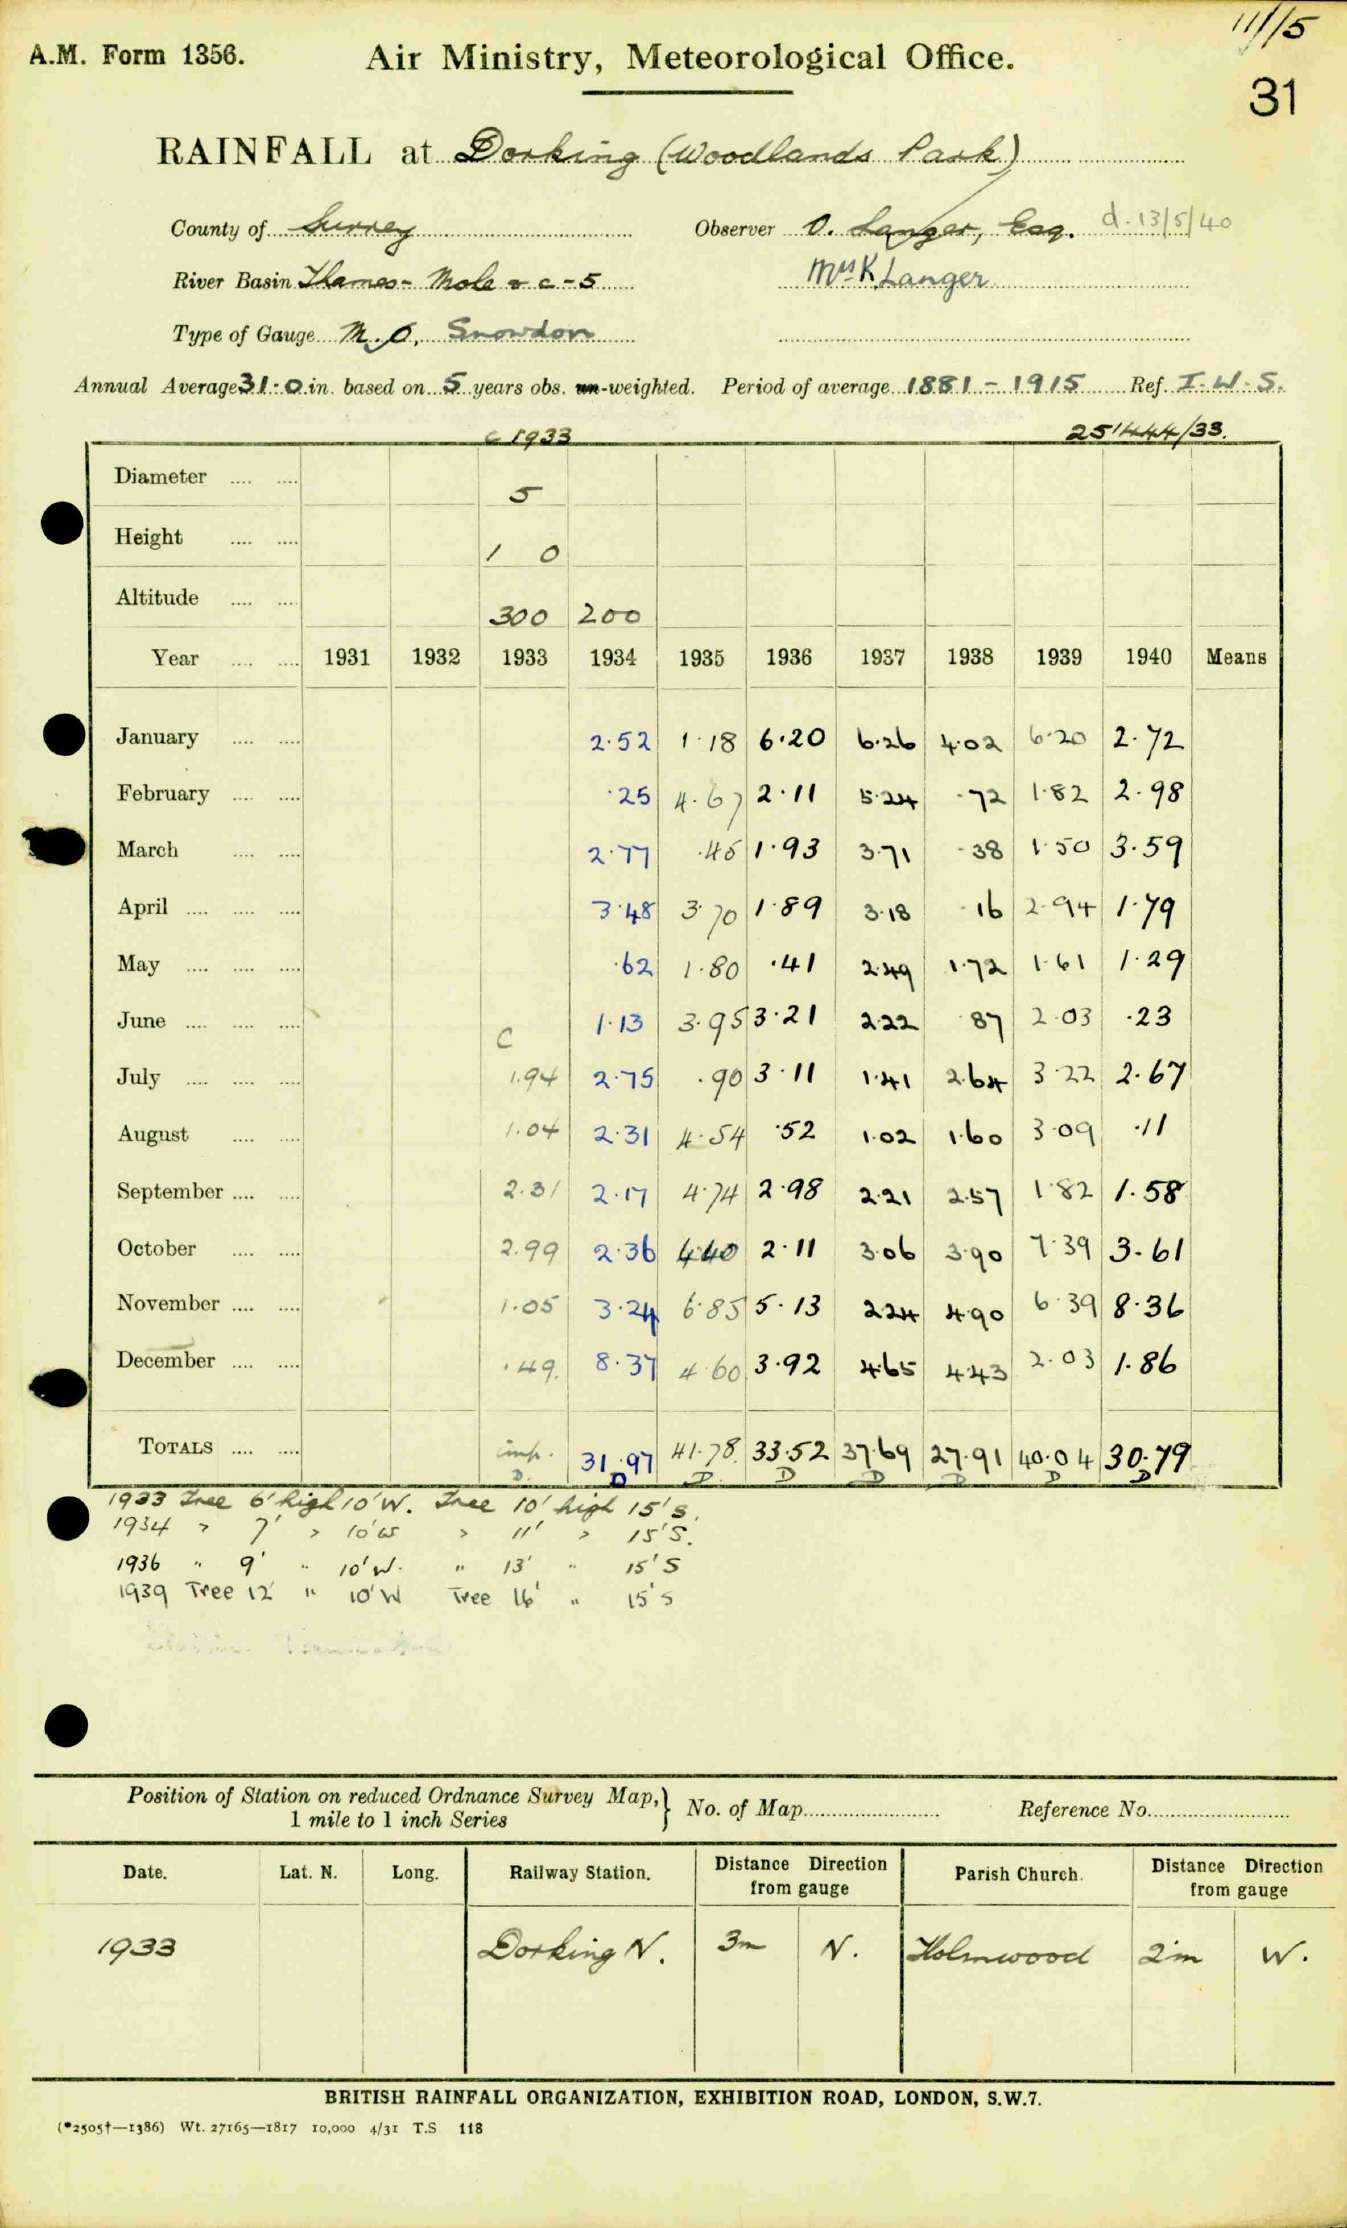 11/15
A.M. Form 1356.
Air Ministry, Meteorological Office.
31
RAINFALL at Dorking (Woodlands Park)
County of Surrey
Observer O. Langer, Esq. d. 13/5/40
River Basin Thames - Mole & c - 5
Mrs K. Langer
Type of Gauge M.O. Snowdon
Annual Average 31.0 in. based on 5 years obs. un-weighted. Period of average 1881 - 1915 Ref. I.W.S.
c 1933 /33.
Diameter .... .... 5
Height .... .... 1 0
Altitude .... .... 300 200
Year .... .... 1931 1932 1933 1934 1935 1936 1937 1938 1939 1940 Means
January .... .... 2.52 1.18 6.20 6.26 4.02 6.20 2.72
February .... .... .25 4.67 2.11 5.24 .72 1.82 2.98
March .... .... 2.77 .45 1.93 3.71 .38 1.50 3.59
April .... .... .... 3.48 3.70 1.89 3.18 .16 2.94 1.79
May .... .... .... .62 1.80 .41 2.49 1.72 1.61 1.29
June .... .... .... C 1.13 3.95 3.21 2.22 .87 2.03 .23
July .... .... .... 1.94 2.75 .90 3.11 1.41 2.64 3.22 2.67
August .... .... 1.04 2.31 4.54 .52 1.02 1.60 3.09 .11
September .... .... 2.31 2.17 4.74 2.98 2.21 2.57 1.82 1.58
October .... .... 2.99 2.36 4.40 2.11 3.06 3.90 7.39 3.61
November .... .... 1.05 3.24 6.85 5.13 2.24 4.90 6.39 8.36
December .... .... .49 8.37 4.60 3.92 4.65 4.43 2.03 1.86
TOTALS .... .... imp. 31.97 41.78 33.52 37.69 27.91 40.04 30.79
D. D D D D D D D
1933 Tree 6' high 10' W. Tree 10' high 15' S.
1934 " 7' " 10' W " 11' " 15' S.
1936 " 9' " 10' W. " 13' " 15' S
1939 Tree 12' " 10' W Tree 16' " 15' S
Position of Station on reduced Ordnance Survey Map,
1 mile to 1 inch Series
} No. of Map Reference No.
Date. Lat. N. Long. Railway Station. Distance Direction from gauge Parish Church. Distance Direction from gauge
1933 Dorking N. 3m N. Holmwood 2m W.
BRITISH RAINFALL ORGANIZATION, EXHIBITION ROAD, LONDON, S.W.7.
(*2505†—1386) Wt. 27165—1817 10,000 4/31 T.S 118